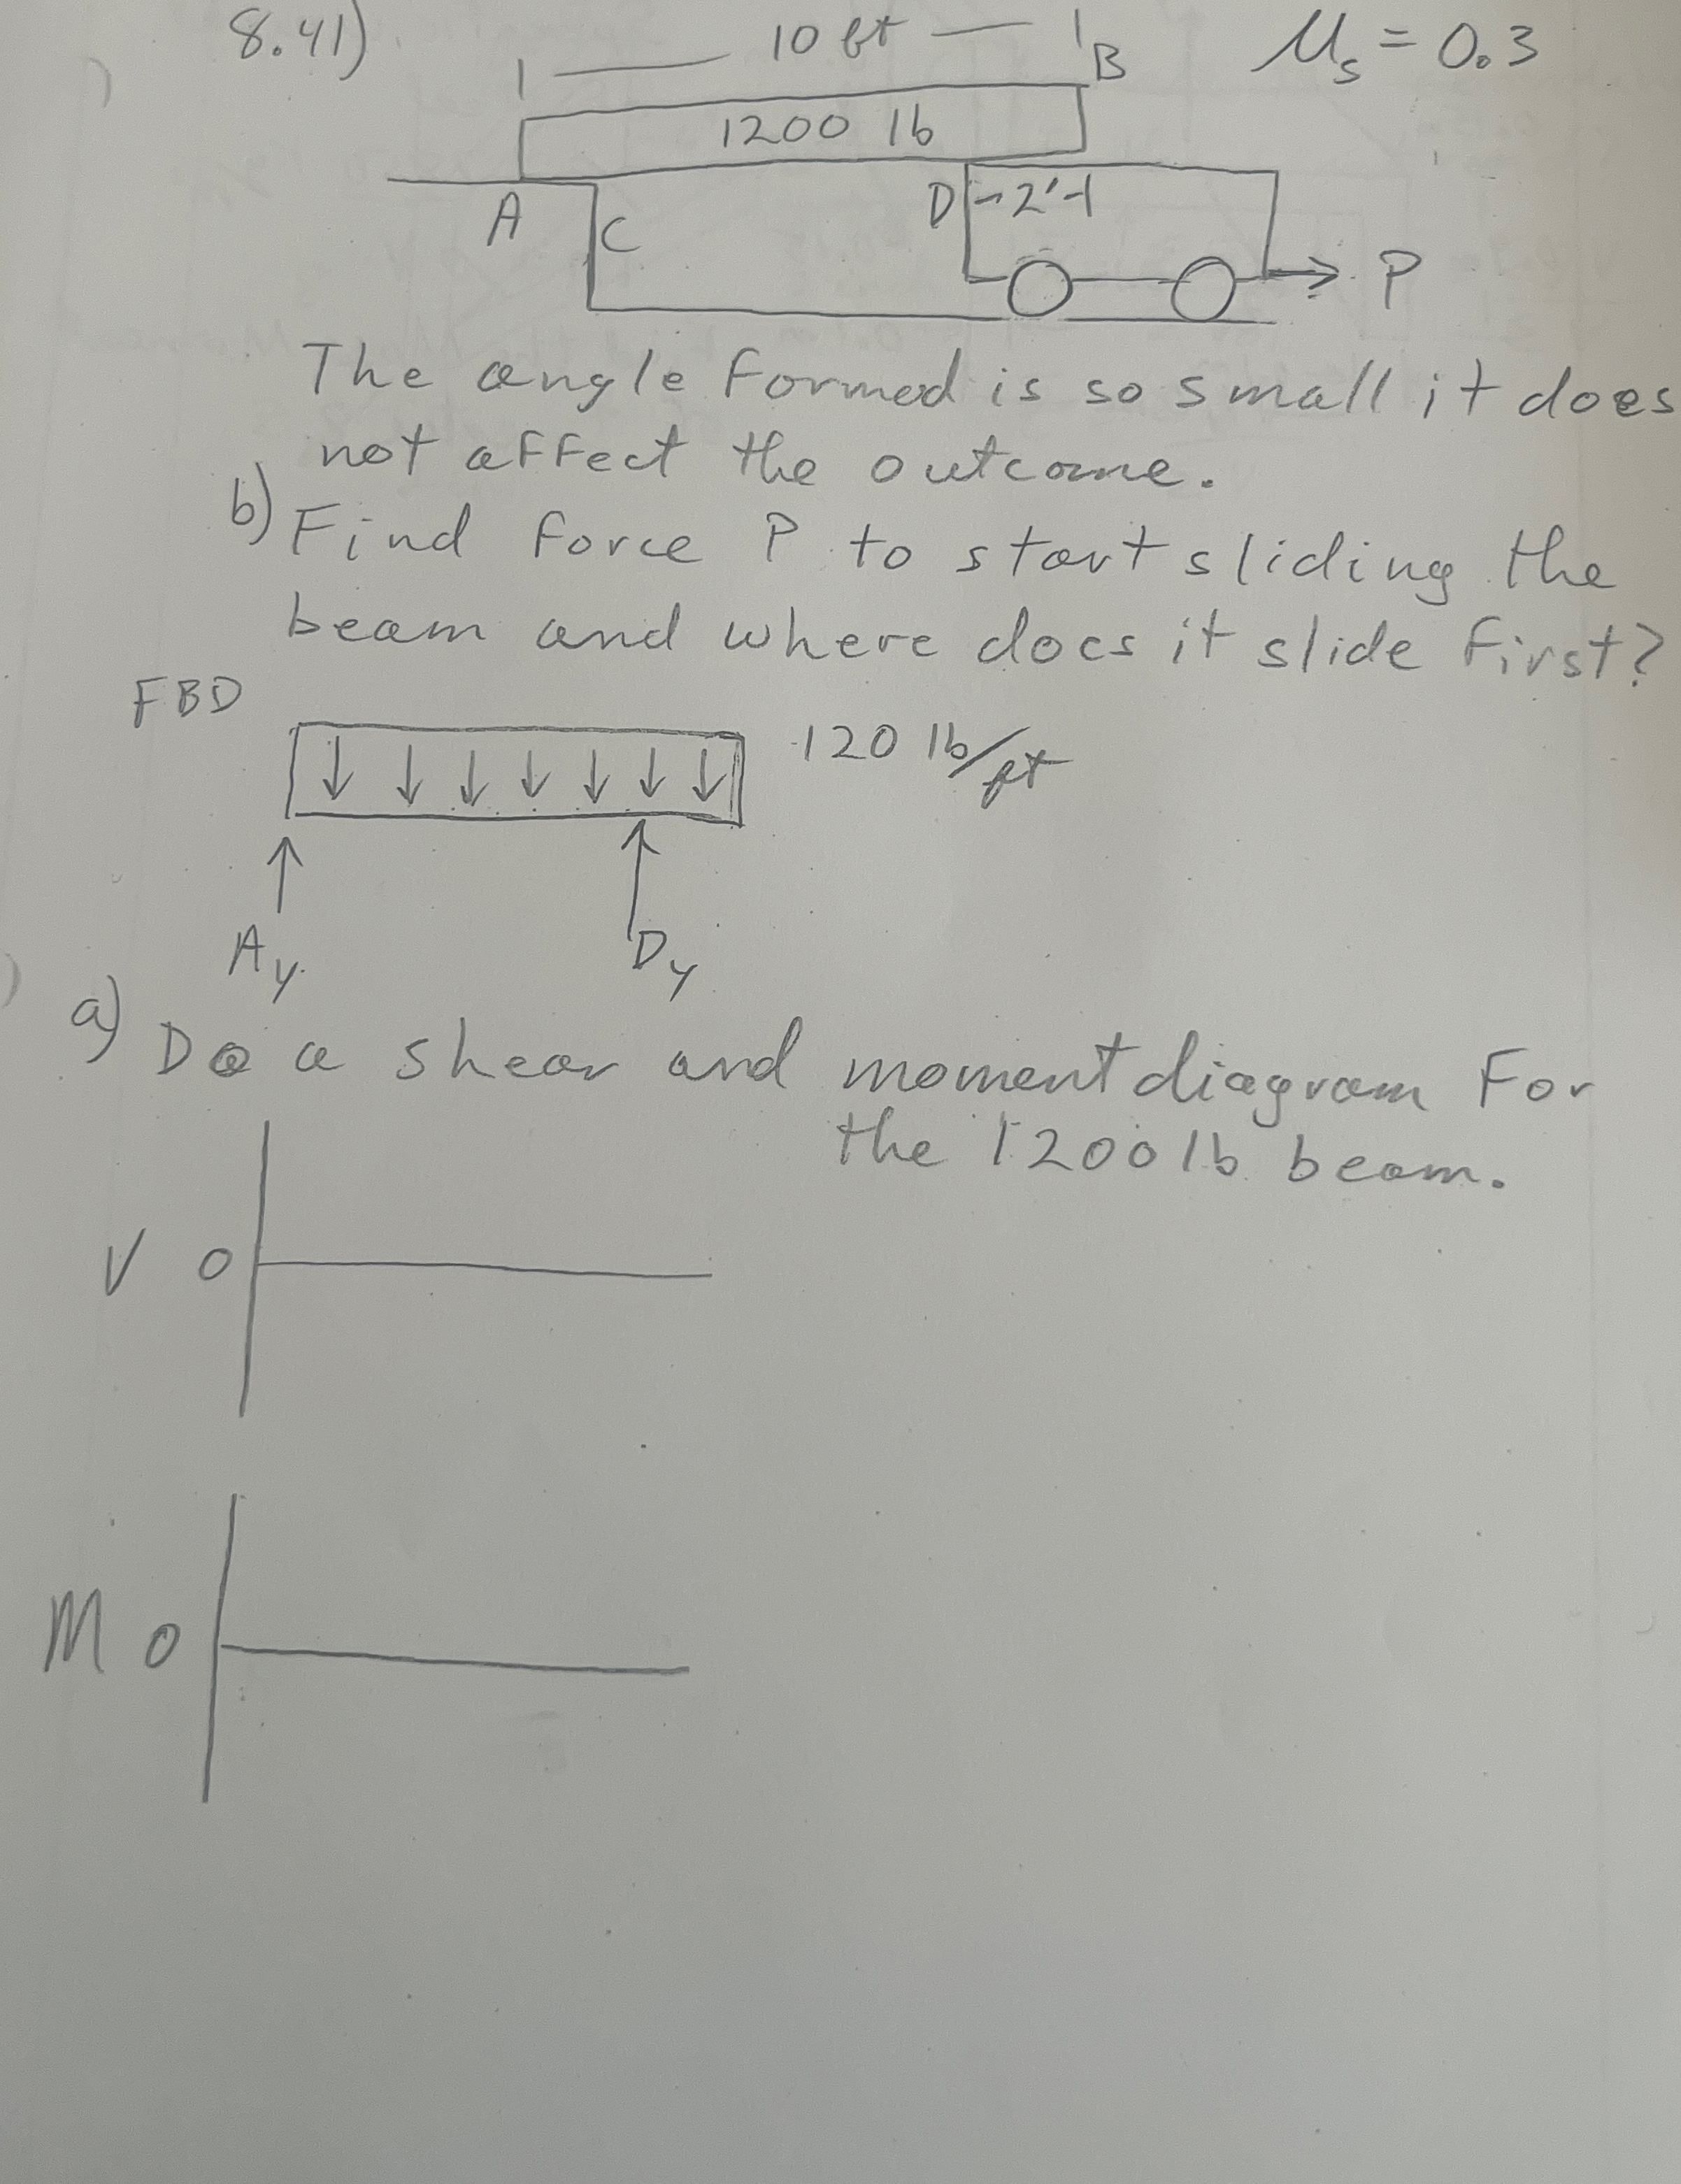 8.41) 10 ft B μs = 0.3
1200 lb
A C D 2'
P
The angle formed is so small it does
not affect the outcome.
b) Find force P to start sliding the
beam and where does it slide first?
FBD
120 lb/ft
Ay Dy
a) Do a shear and moment diagram For
the 1200 lb beam.
V 0
M 0